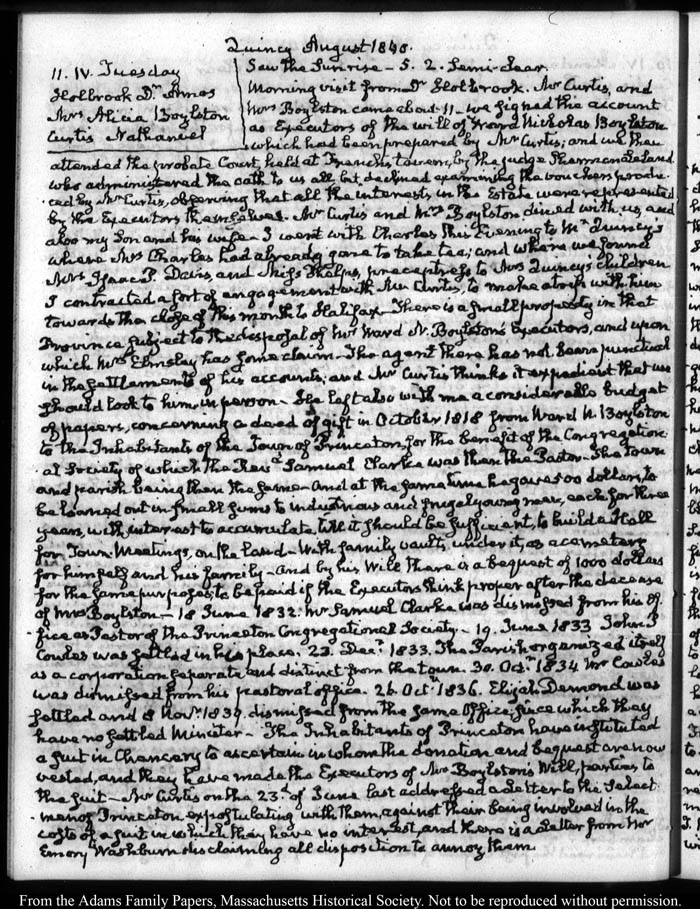 Quincy August 1840.
11. IV. Tuesday
Holbrook Dr. Amos
Mrs Alicia Boylston
Curtis Nathaniel
Saw the Sunrise - 5. 2. Semi-clear.
Morning visit from Dr Holbrook. Mr Curtis, and
Mrs Boylston came about 11 - we signed the account
as Executors of the will of Ward Nicholas Boylston
which had been prepared by Mr Curtis; and we then
attended the probate Court, held at French's tavern, by the judge Sherman Leland
who administered the oath to us all but declined examining the vouchers produ-
ced by Mr Curtis, observing that all the interests in the Estate were represented
by the Executors themselves. Mr Curtis and Mrs Boylston dined with us, and
also my Son and his wife. I went with Charles this Evening to Mr Quincy's
where Mrs Charles had already gone to take tea; and where we found
Mrs Isaac P. Davis, and Miss Phelps, preceptress to Mrs Quincy's children
I contracted a sort of engagement with Mr Curtis, to make a trip with him
towards the close of this month to Halifax - There is a small property in that
Province subject to the disposal of Mr Ward N. Boylston's Executors, and upon
which Mrs Elmsley has some claim - The agent there has not been punctual
in the settlements of his accounts; and Mr Curtis thinks it expedient that we
should look to him, in person - He left also with me a considerable budget
of papers, concerning a deed of gift in October 1818 from Ward N. Boylston
to the Inhabitants of the Town of Princeton, for the benefit of the Congregation-
al Society of which the Revd Samuel Clarke was then the Pastor - The town
and parish being then the same - And at the same time he gave 500 dollars, to
be loaned out in small sums to industrious and frugal young men, each for three
years, with interest to accumulate till it should be sufficient, to build a Hall
for Town-Meetings, on the land - With family vaults under it, as a cemetery
for himself and his family - and by his Will there is a bequest of 1000 dollars
for the same purposes, to be paid if the Executors think proper after the decease
of Mrs Boylston - 18 June 1832. Mr Samuel Clarke was dismissed from his of-
fice as Pastor of the Princeton Congregational Society - 19. June 1833 John P.
Cowles was settled in his place. 23. Decr 1833. The Parish organized itself
as a corporation separate and distinct from the town. 30. Octr 1834 Mr Cowles
was dismissed from his pastoral office. 26. Octr 1836. Elijah Demond was
settled and 8 Novr 1839. dismissed from the same Office; since which they
have no settled Minister - The Inhabitants of Princeton have instituted
a suit in Chancery to ascertain in whom the donation and bequest are now
vested, and they have made the Executors of Mr Boylston's Will, parties to
the suit - Mr Curtis on the 23d of June last addressed a Letter to the Select-
men of Princeton expostulating with them, against their being involved in the
costs of a suit in which they have no interest, and there is a Letter from Mr
Emory Washburn disclaiming all disposition to annoy them.
From the Adams Family Papers, Massachusetts Historical Society. Not to be reproduced without permission.